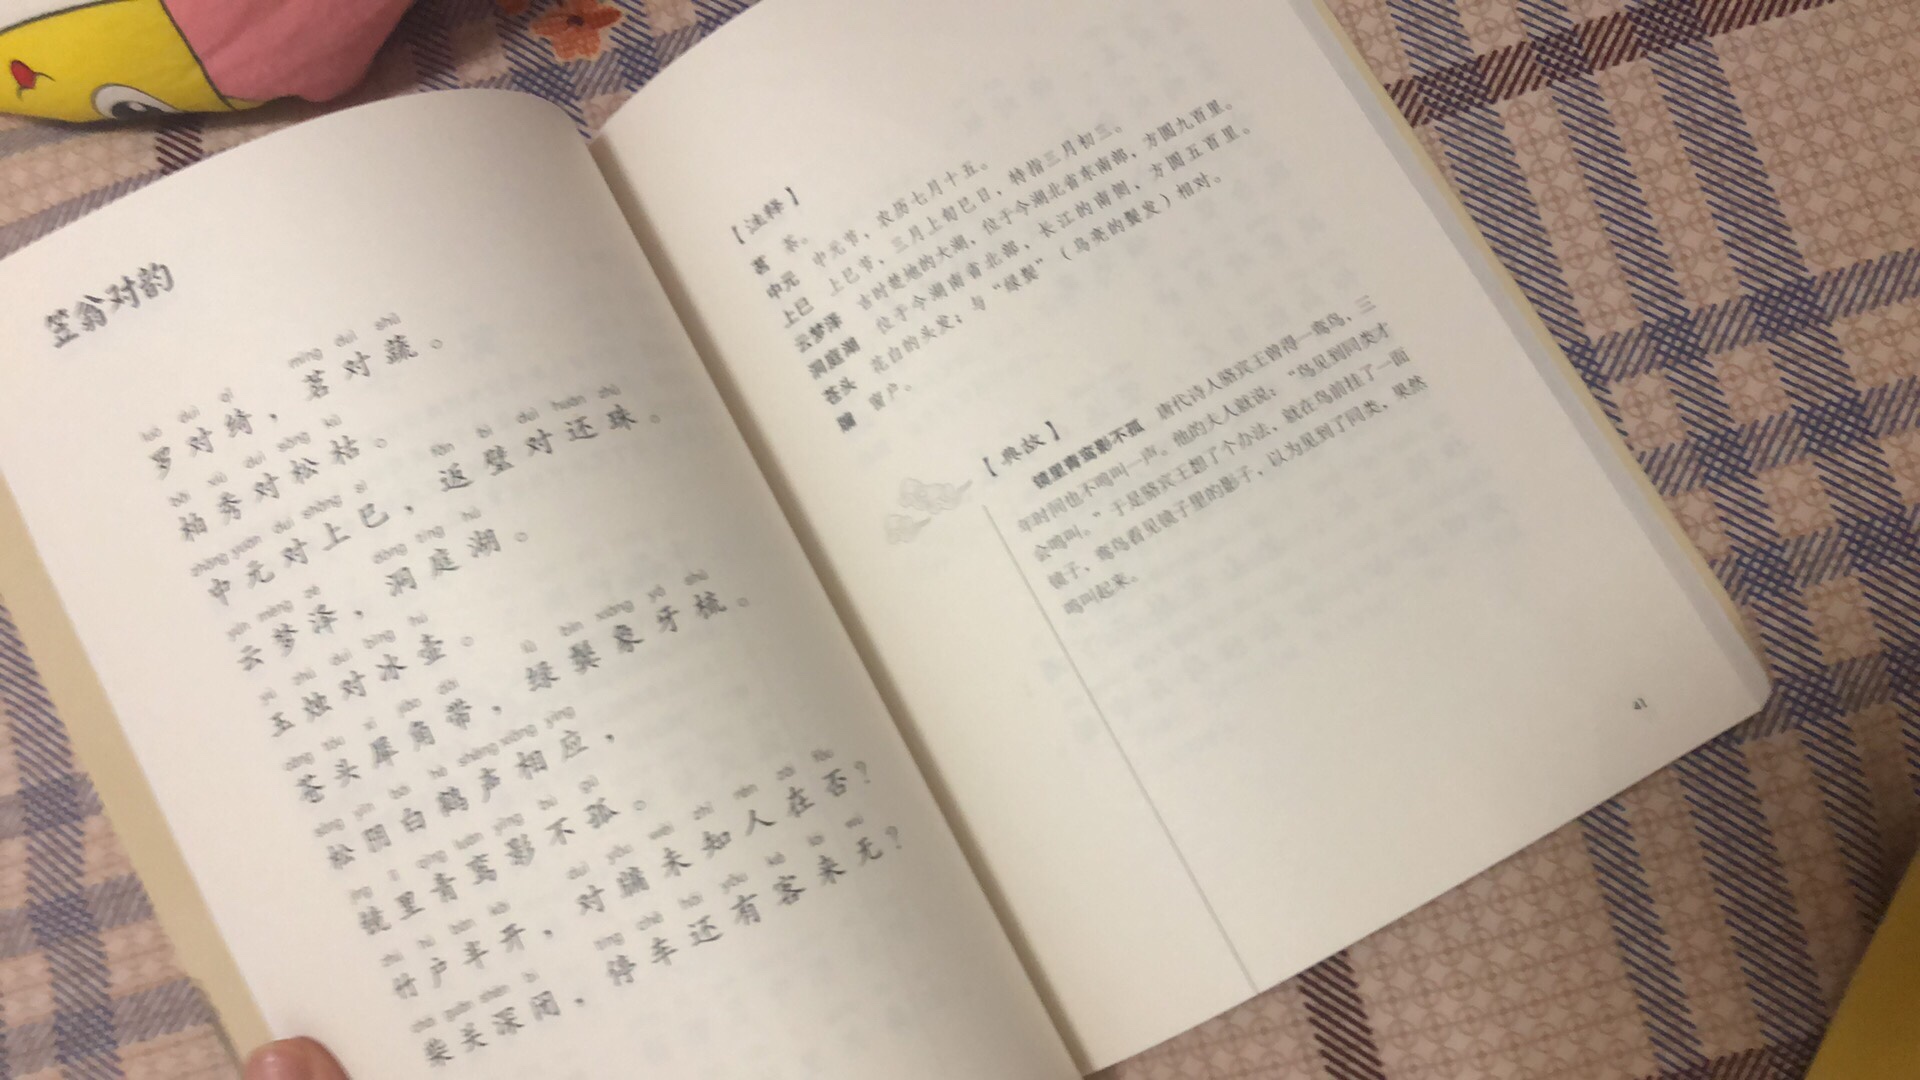 笠翁对韵
luó duì qǐ míng duì shū
罗对绮，茗对蔬。
bǎi xiù duì sōng kū
柏秀对松枯。
zhōng yuán duì shàng sì fǎn bì duì huán zhū
中元对上巳，返璧对还珠。
yún mèng zé dòng tíng hú
云梦泽，洞庭湖。
yù zhú duì bīng hú
玉烛对冰壶。
cāng tóu xī jiǎo dài lǜ bìn xiàng yá shū
苍头犀角带，绿鬓象牙梳。
sōng yīn bái hè shēng xiāng yìng
松阴白鹤声相应，
jìng lǐ qīng luán yǐng bù gū
镜里青鸾影不孤。
zhú hù bàn kāi duì yǒu wèi zhī rén zài fǒu
竹户半开，对牖未知人在否？
chái guān shēn bì tíng chē hái yǒu kè lái wú
柴关深闭，停车还有客来无？
【注释】
茗 茶。
中元 中元节，农历七月十五。
上巳 上巳节，三月上旬巳日，特指三月初三。
云梦泽 古时楚地的大湖，位于今湖北省东南部，方圆九百里。
洞庭湖 位于今湖南省北部，长江的南侧，方圆五百里。
苍头 花白的头发；与“绿鬓”（乌亮的鬓发）相对。
牖 窗户。
【典故】
镜里青鸾影不孤 唐代诗人骆宾王曾得一鸾鸟，三
年时间也不鸣叫一声。他的夫人就说：“鸟见到同类才
会鸣叫。”于是骆宾王想了个办法，就在鸟前挂了一面
镜子，鸾鸟看见镜子里的影子，以为见到了同类，果然
鸣叫起来。
41